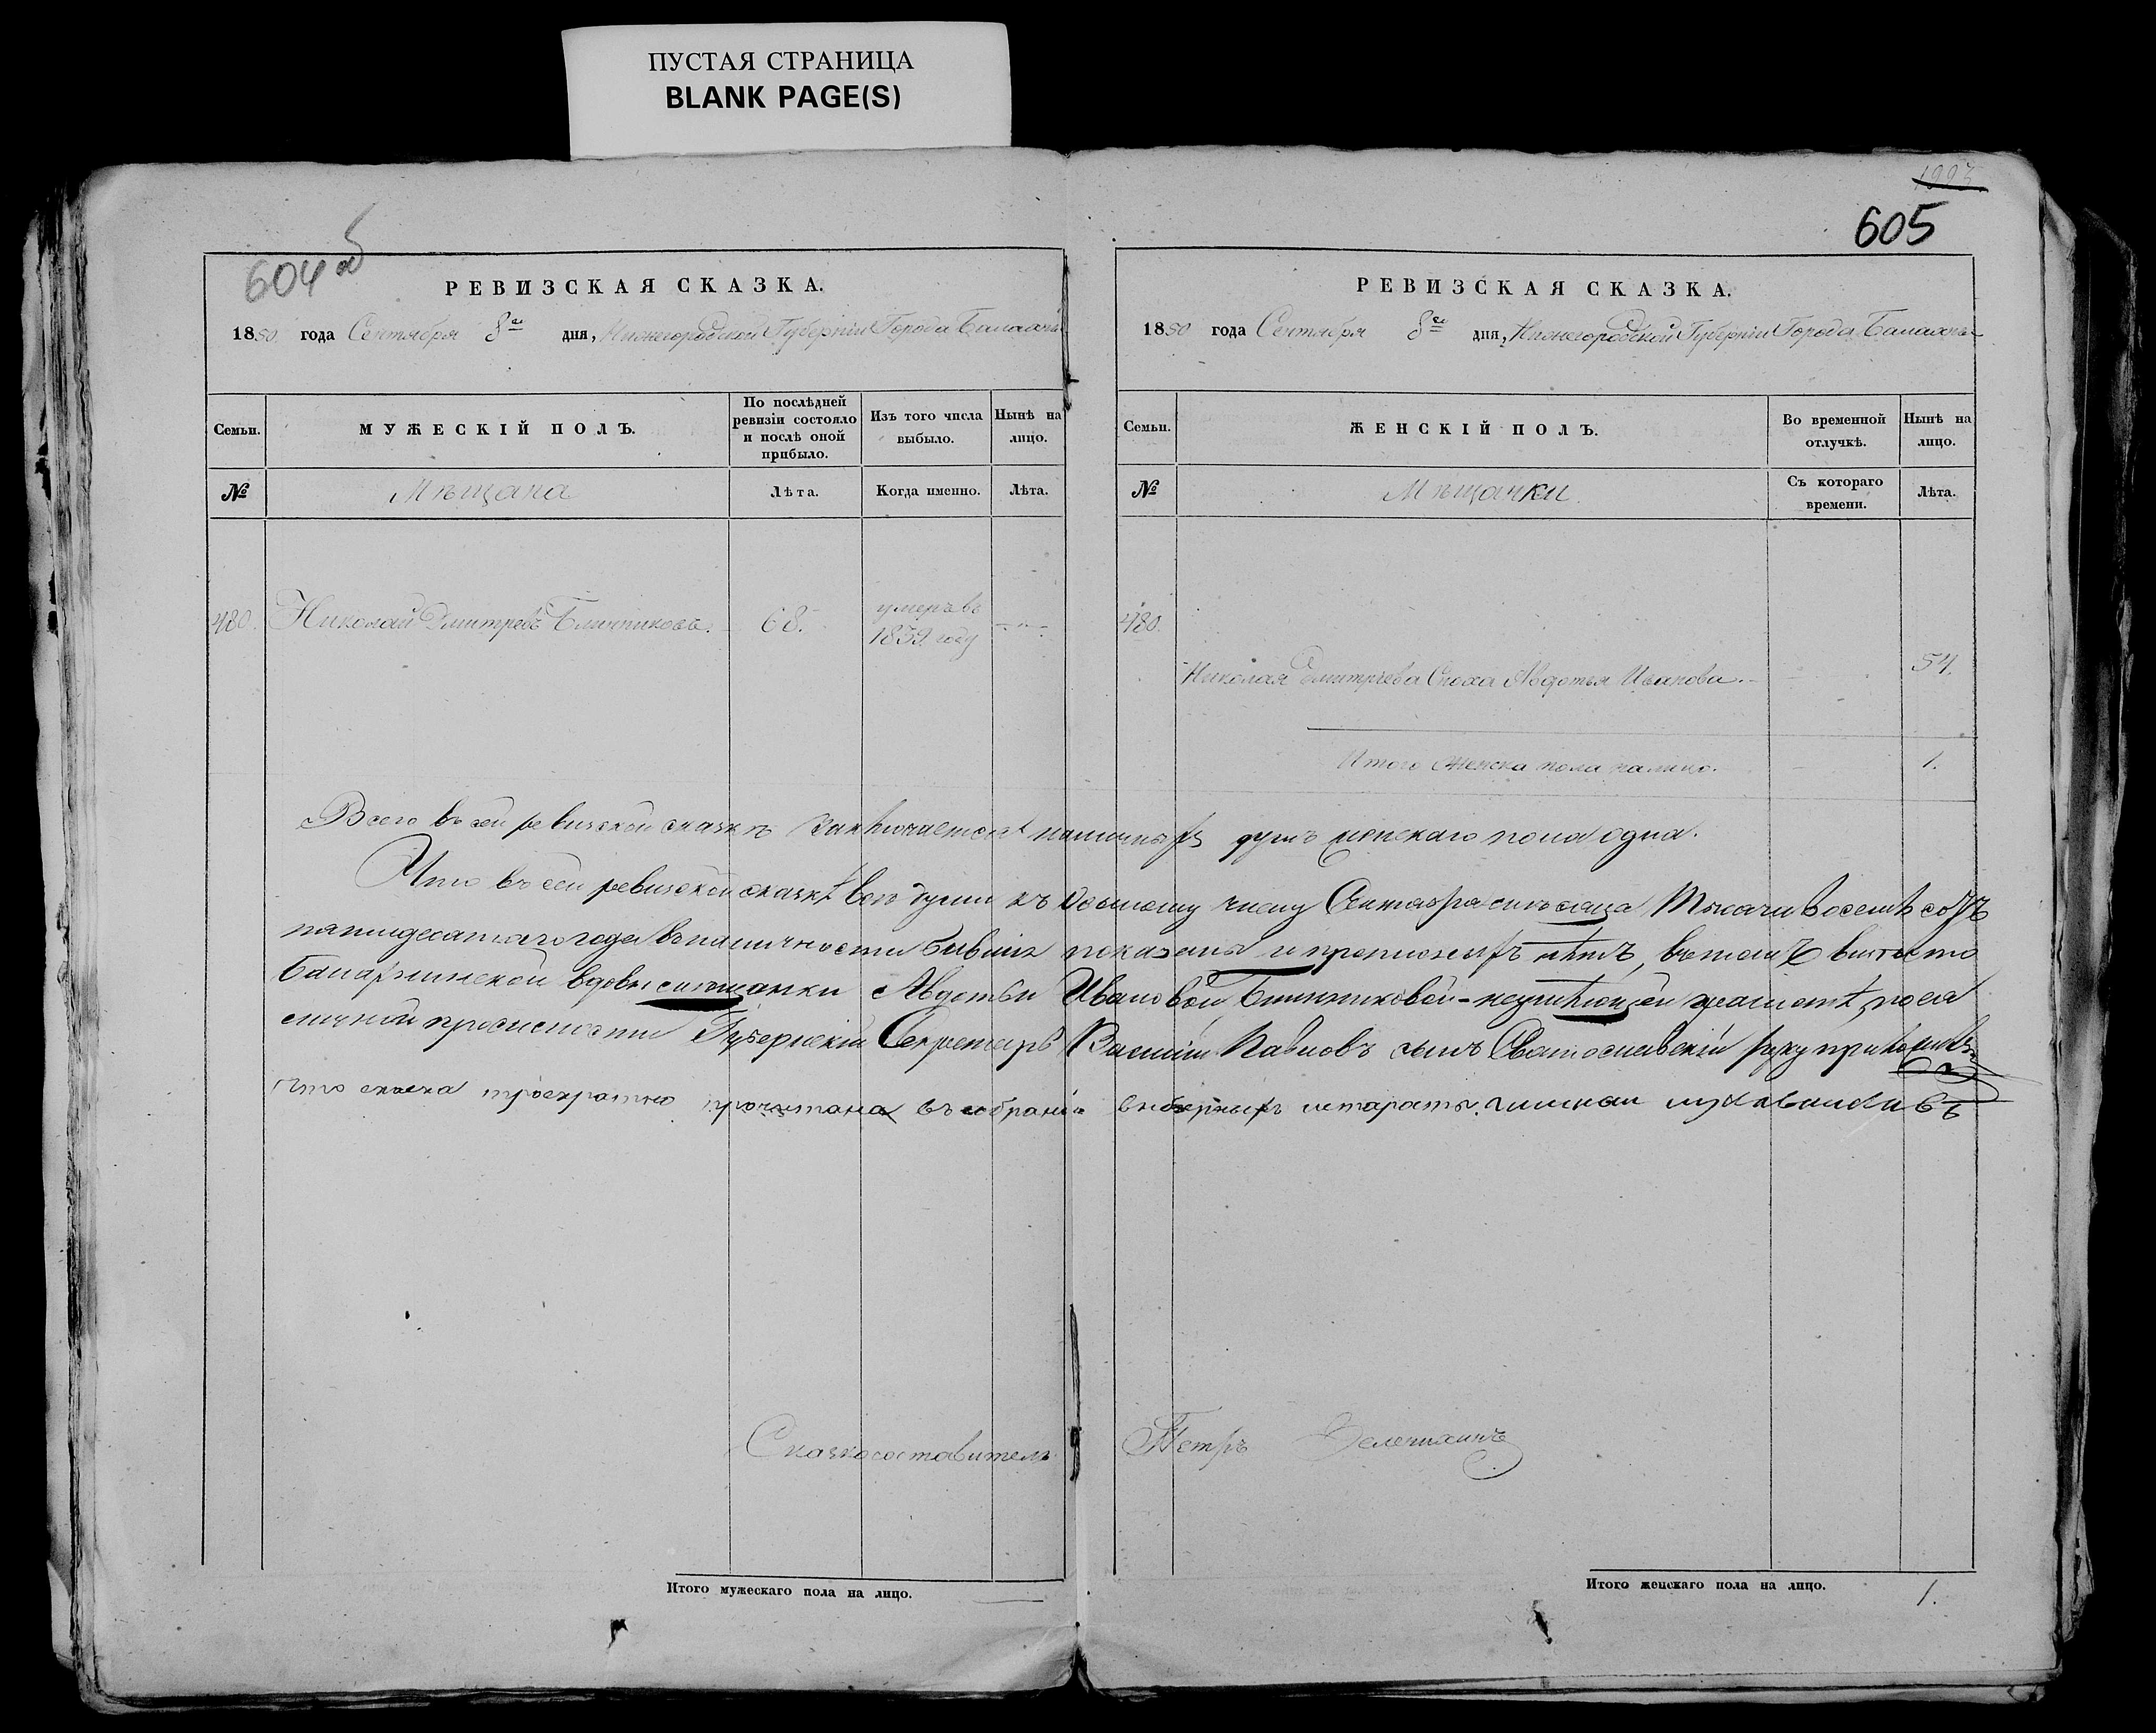 ПУСТАЯ СТРАНИЦА
BLANK PAGE(S)
604 об
РЕВИЗСКАЯ СКАЗКА.
1850 года Сентября 8го дня, Нижегородской Губерніи Города Балахны
Семьи.
МУЖЕСКІЙ ПОЛЪ.
По послѣдней
ревизіи состояло
и послѣ оной
прибыло.
Изъ того числа
выбыло.
Нынѣ на
лицо.
№
Мѣщана
Лѣта.
Когда именно.
Лѣта.
480.
Николай Дмитревъ Блинниковъ.
68.
умеръ въ
1839 году
605
РЕВИЗСКАЯ СКАЗКА.
1850 года Сентября 8го дня, Нижегородской Губерніи Города Балахны
Семьи.
ЖЕНСКІЙ ПОЛЪ.
Во временной
отлучкѣ.
Нынѣ на
лицо.
№
Мѣщанки
Съ котораго
времени.
Лѣта.
480.
Николая Дмитріева Сноха Авдотья Иванова.
54.
Итого женска пола налицо.
1.
Всего въ сей ревизской сказкѣ заключается наличныхъ душъ женскаго пола одна.
Что въ сей ревизской сказкѣ всѣ души къ осьмому числу Сентября сего мѣсяца Тысяча восемь сотъ
пятидесятаго года въ наличности бывшія показаны и прописныхъ нѣтъ, въ томъ вмѣсто
Балахнинской вдовы мѣщанки Авдотьи Ивановой Блинниковой неумѣющей грамотѣ, по ея
личной прозьбѣ Губернскій Секретарь Василій Павловъ сынъ Святославскій руку приложилъ
Что сказка троекратно прочитана въ собраніи
Сказкосоставитель Петръ
Итого мужескаго пола на лицо.
Итого женскаго пола на лицо.
1.